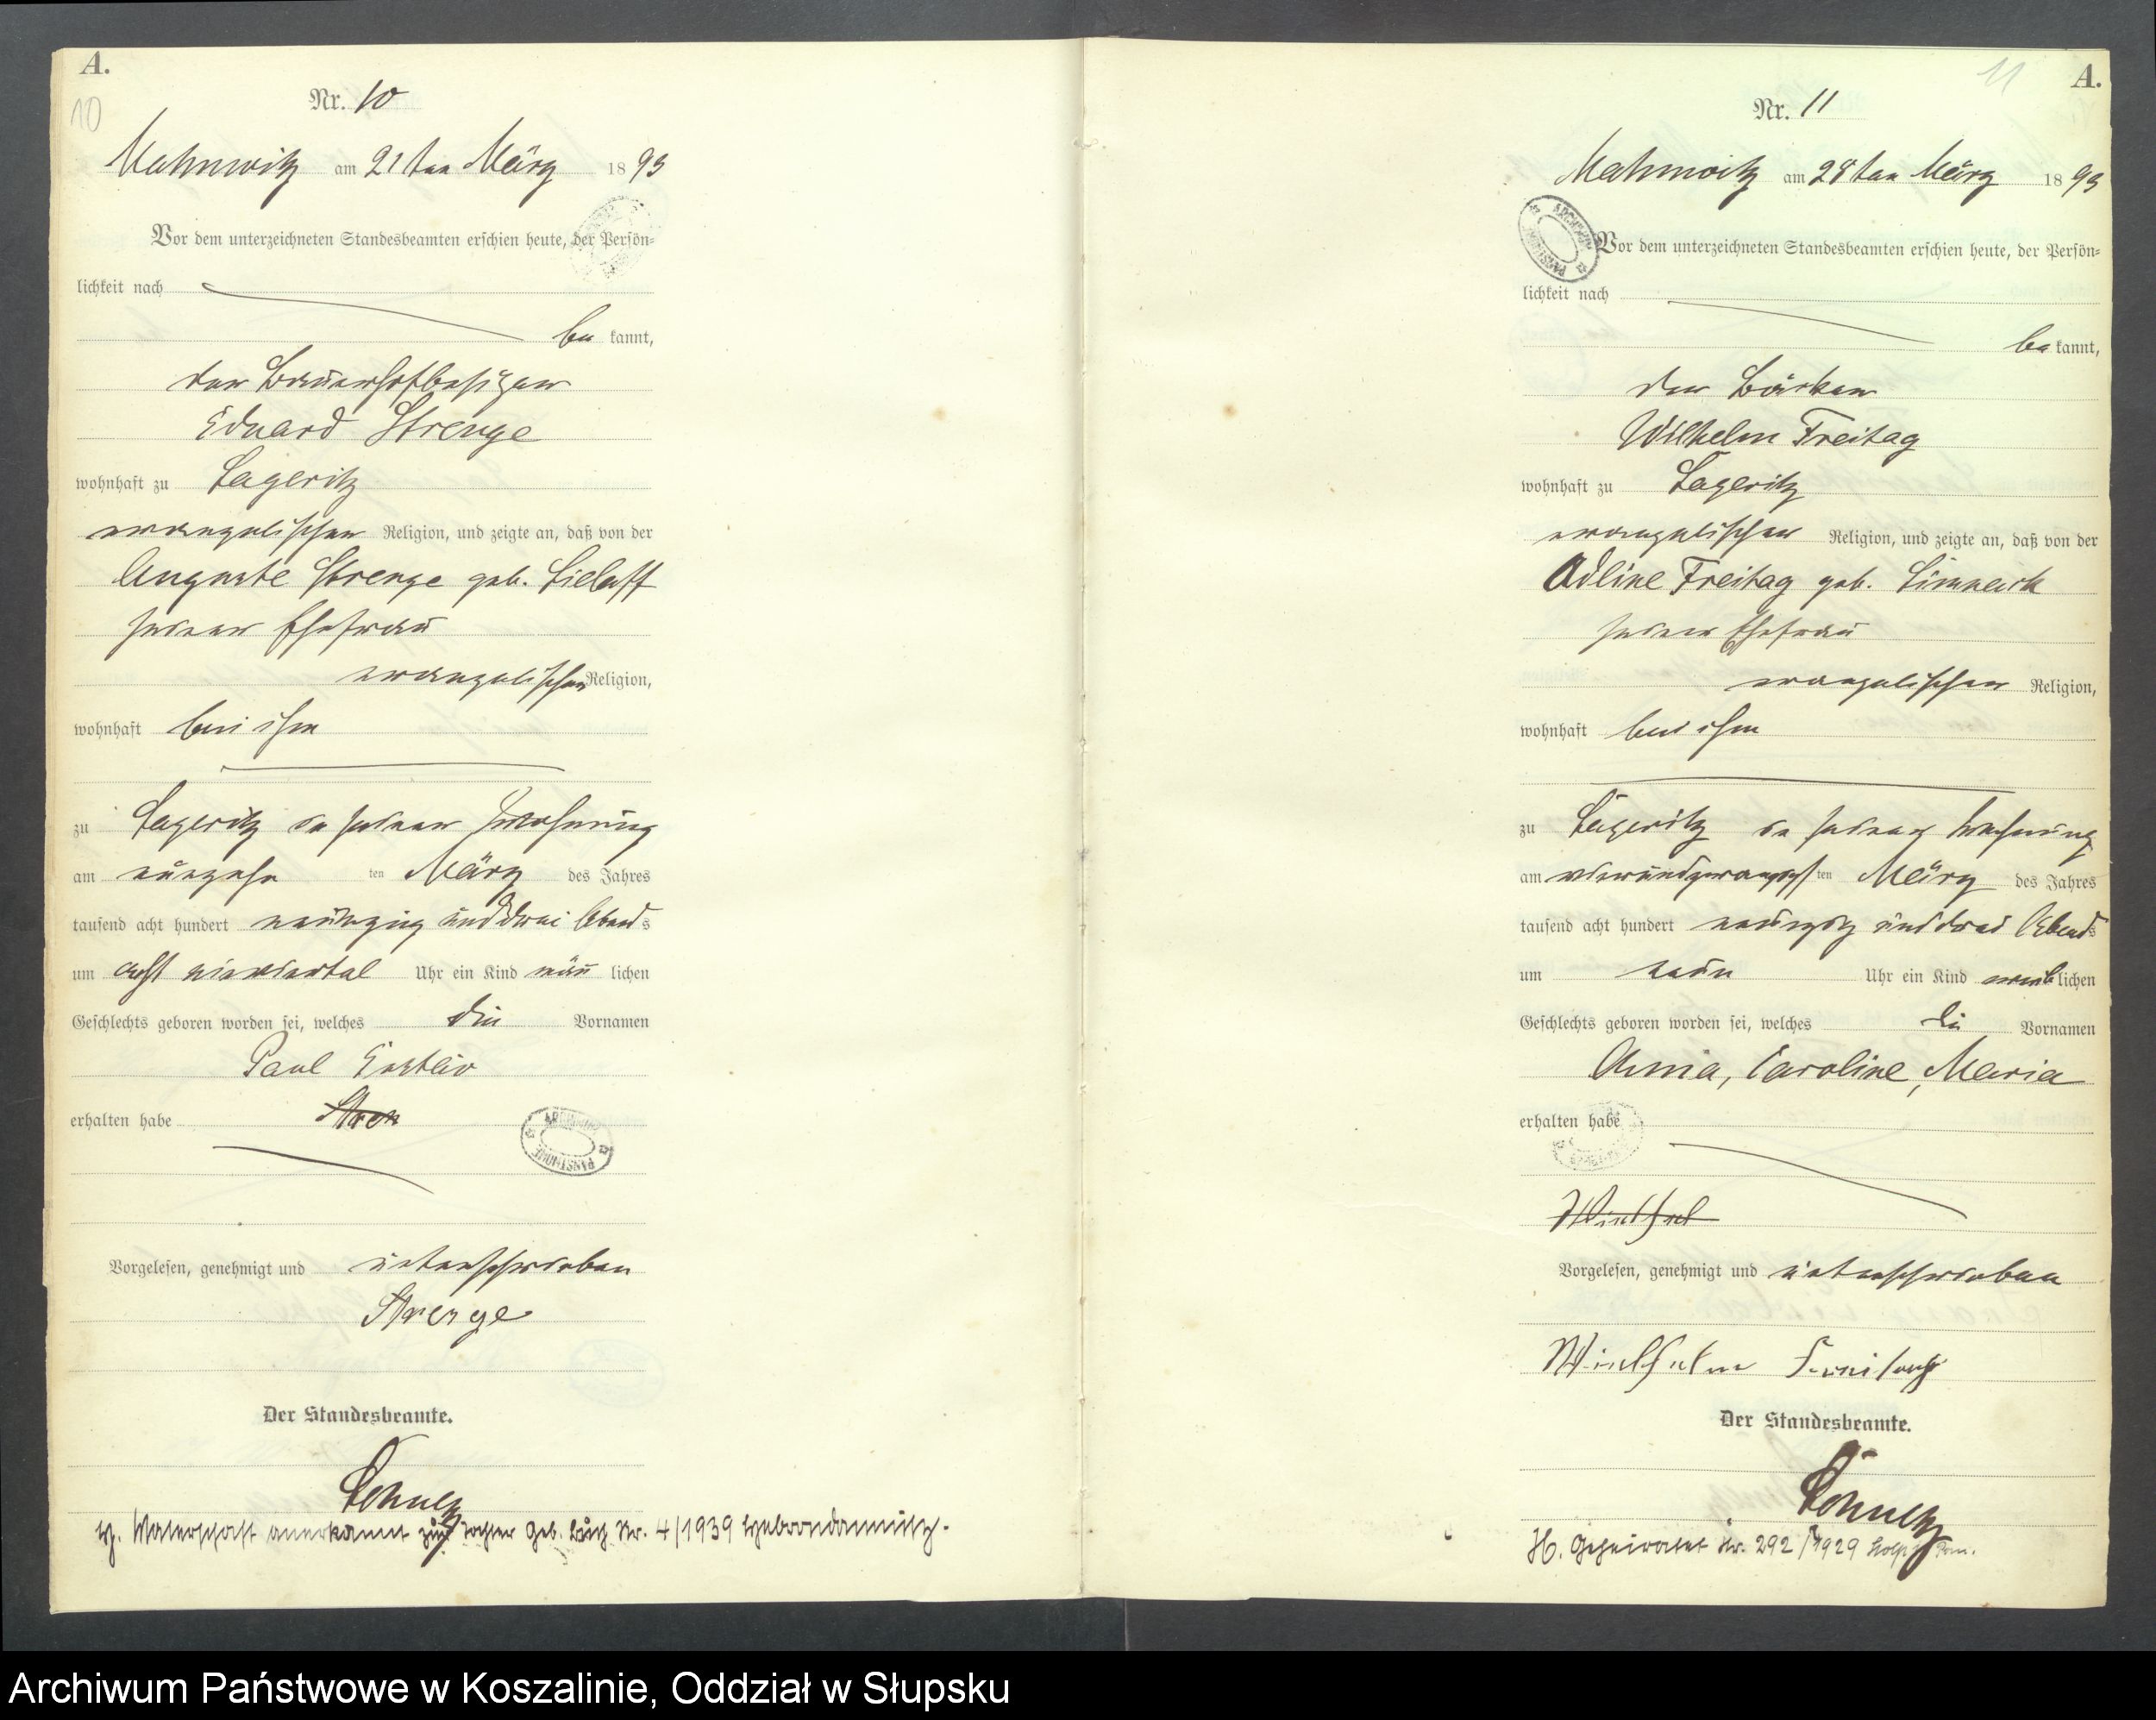 A.
10
Nr. 10
Mahnwitz am 21ten März 1893
Vor dem unterzeichneten Standesbeamten erschien heute, der Persön-
lichkeit nach
be kannt,
der Bauerhofbesitzer
Eduard Strenge
wohnhaft zu Lageritz
evangelischer Religion, und zeigte an, daß von der
Auguste Strenge geb. Lielaff
seiner Ehefrau
evangelischer Religion,
wohnhaft bei ihm
zu Lageritz in seiner Wohnung
am ten März des Jahres
tausend acht hundert neunzig und drei Abends
um acht einviertel Uhr ein Kind männ lichen
Geschlechts geboren worden sei, welches die Vornamen
Paul Gustav
erhalten habe Stren
Vorgelesen, genehmigt und unterschrieben
Strenge
Der Standesbeamte.
Schulz
Vaterschaft anerkannt zur Tochter Geb. Buch Nr. 4/1939 Hebrondamnitz.
ARCHIWUM PAŃSTWOWE
11
A.
Nr. 11
Mahnwitz am 28ten März 1893
Vor dem unterzeichneten Standesbeamten erschien heute, der Persön-
lichkeit nach
be kannt,
der
Wilhelm Freitag
wohnhaft zu Lageritz
evangelischer Religion, und zeigte an, daß von der
Adline Freitag geb.
seiner Ehefrau
evangelischer Religion,
wohnhaft bei ihm
zu Lageritz in seiner Wohnung
am vierundzwanzigsten März des Jahres
tausend acht hundert neunzig und drei Abends
um neun Uhr ein Kind weib lichen
Geschlechts geboren worden sei, welches die Vornamen
Anna, Caroline, Maria
erhalten habe
Vorgelesen, genehmigt und unterschrieben
Wielhelm Freitag
Der Standesbeamte.
Schulz
H. Geheiratet Nr. 292/1929 Stolp Pom.
Archiwum Państwowe w Koszalinie, Oddział w Słupsku